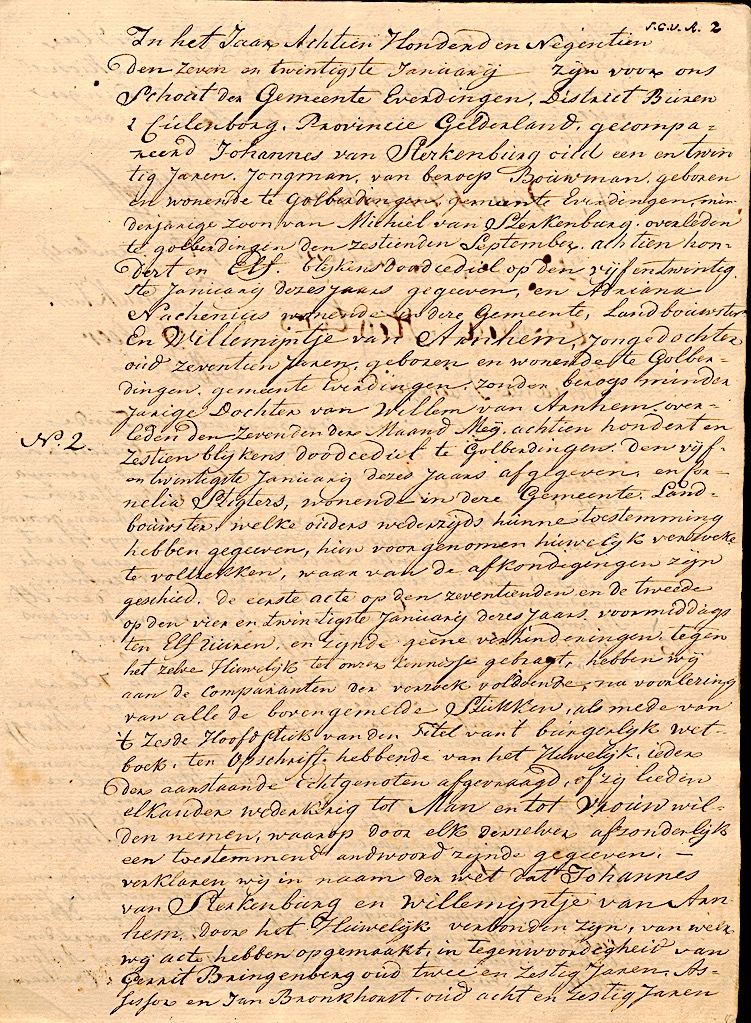 S.G.V.A. 2
In het Jaar Achtien Honderd en Negentien
den zeven en twintigste Januarij zijn voor ons
Schout der Gemeente Everdingen, District Buren
& Cuilenborg. Provincie Gelderland, gecompa-
reerd Johannes van Sterkenburg oud een en twin
tig Jaren. Jongman, van beroep Bouwman, geboren
en wonende te Golberdingen, gemeente Everdingen, min
derjarige zoon van Michiel van Sterkenburg. overleden
te golberdingen den zestienden September. achtien hon-
dert en Elf. blijkens doodcediel op den vijfentwintig
ste Januarij dezes jaars gegeeven, en Adriana
Nachenius wonende in dere Gemeente, Landbouwster
En Willemijntje van Arnhem, Jongedochter
oud zeventien Jaren, geboren en wonende te Golber-
dingen. gemeente Everdingen. zonder beroep minder
Jarige Dochter van Willem van Arnhem, over-
leden den zevenden der Maand Mey. achtien hondert en
N. 2.
zestien blijkens doodcediel te Golberdingen. Den vijf-
en twintigste Januarij dezes Jaars afgegeven, en Cor-
nelia Sluters, wonende in dere Gemeente. Land-
bouwster, welke ouders wederzijds hunne toestemming
hebben gegeeven, hun voorgenomen huwelijk verzoeke
te voltrekken, waar van de afkondigingen zijn
geschied. de eerste acte op den zeventienden en de tweede
op den vier en twintigste Januarij dezes Jaars. voormiddags
ten Elf uuren. en zijnde geene verhinderingen tegen
het zelve Huwelijk ter onzer kennisse gebragt, hebben wij
aan de Comparanten der verzoek voldoende, na voorlezing
van alle de bovengemelde Stukken, als mede van
't Zesde Hoofdstuk van den Titel van 't burgerlijk wet-
boek. ten Opschrift hebbende van het Huwelijk. ieder
der aanstaande Echtgenoten afgevraagd, of zij lieden
elkander wederkerig tot Man en tot Vrouw wil-
den nemen, waarop door elk derzelver afzonderlijk
een toestemmend andwoord zijnde gegeeven. —
verklaren wij in naam der wet dat Johannes
van Sterkenburg en willemijntje van Arn
hem. door het Huwelijk verbonden zijn, van welk
wij acte hebben opgemaakt, in tegenwoordigheid van
Gerrit Bringenberg oud twee en zestig Jaren. As-
sessor en Jan Bronkhorst. oud acht en zestig Jaren